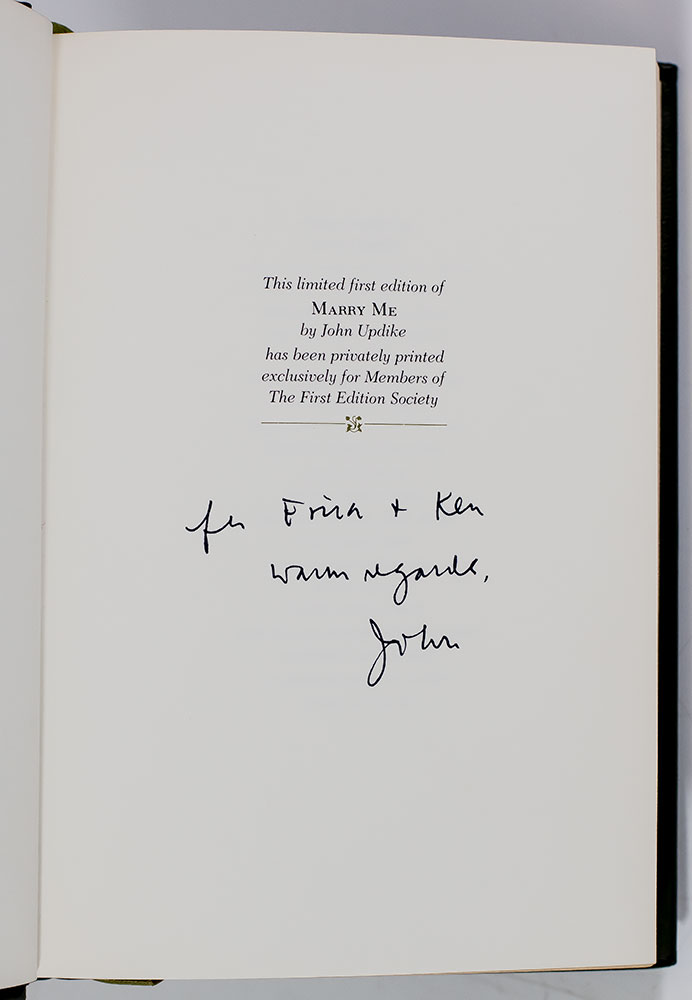 This limited first edition of
MARRY ME
by John Updike
has been privately printed
exclusively for Members of
The First Edition Society
for Erica + Ken
warm regards,
John